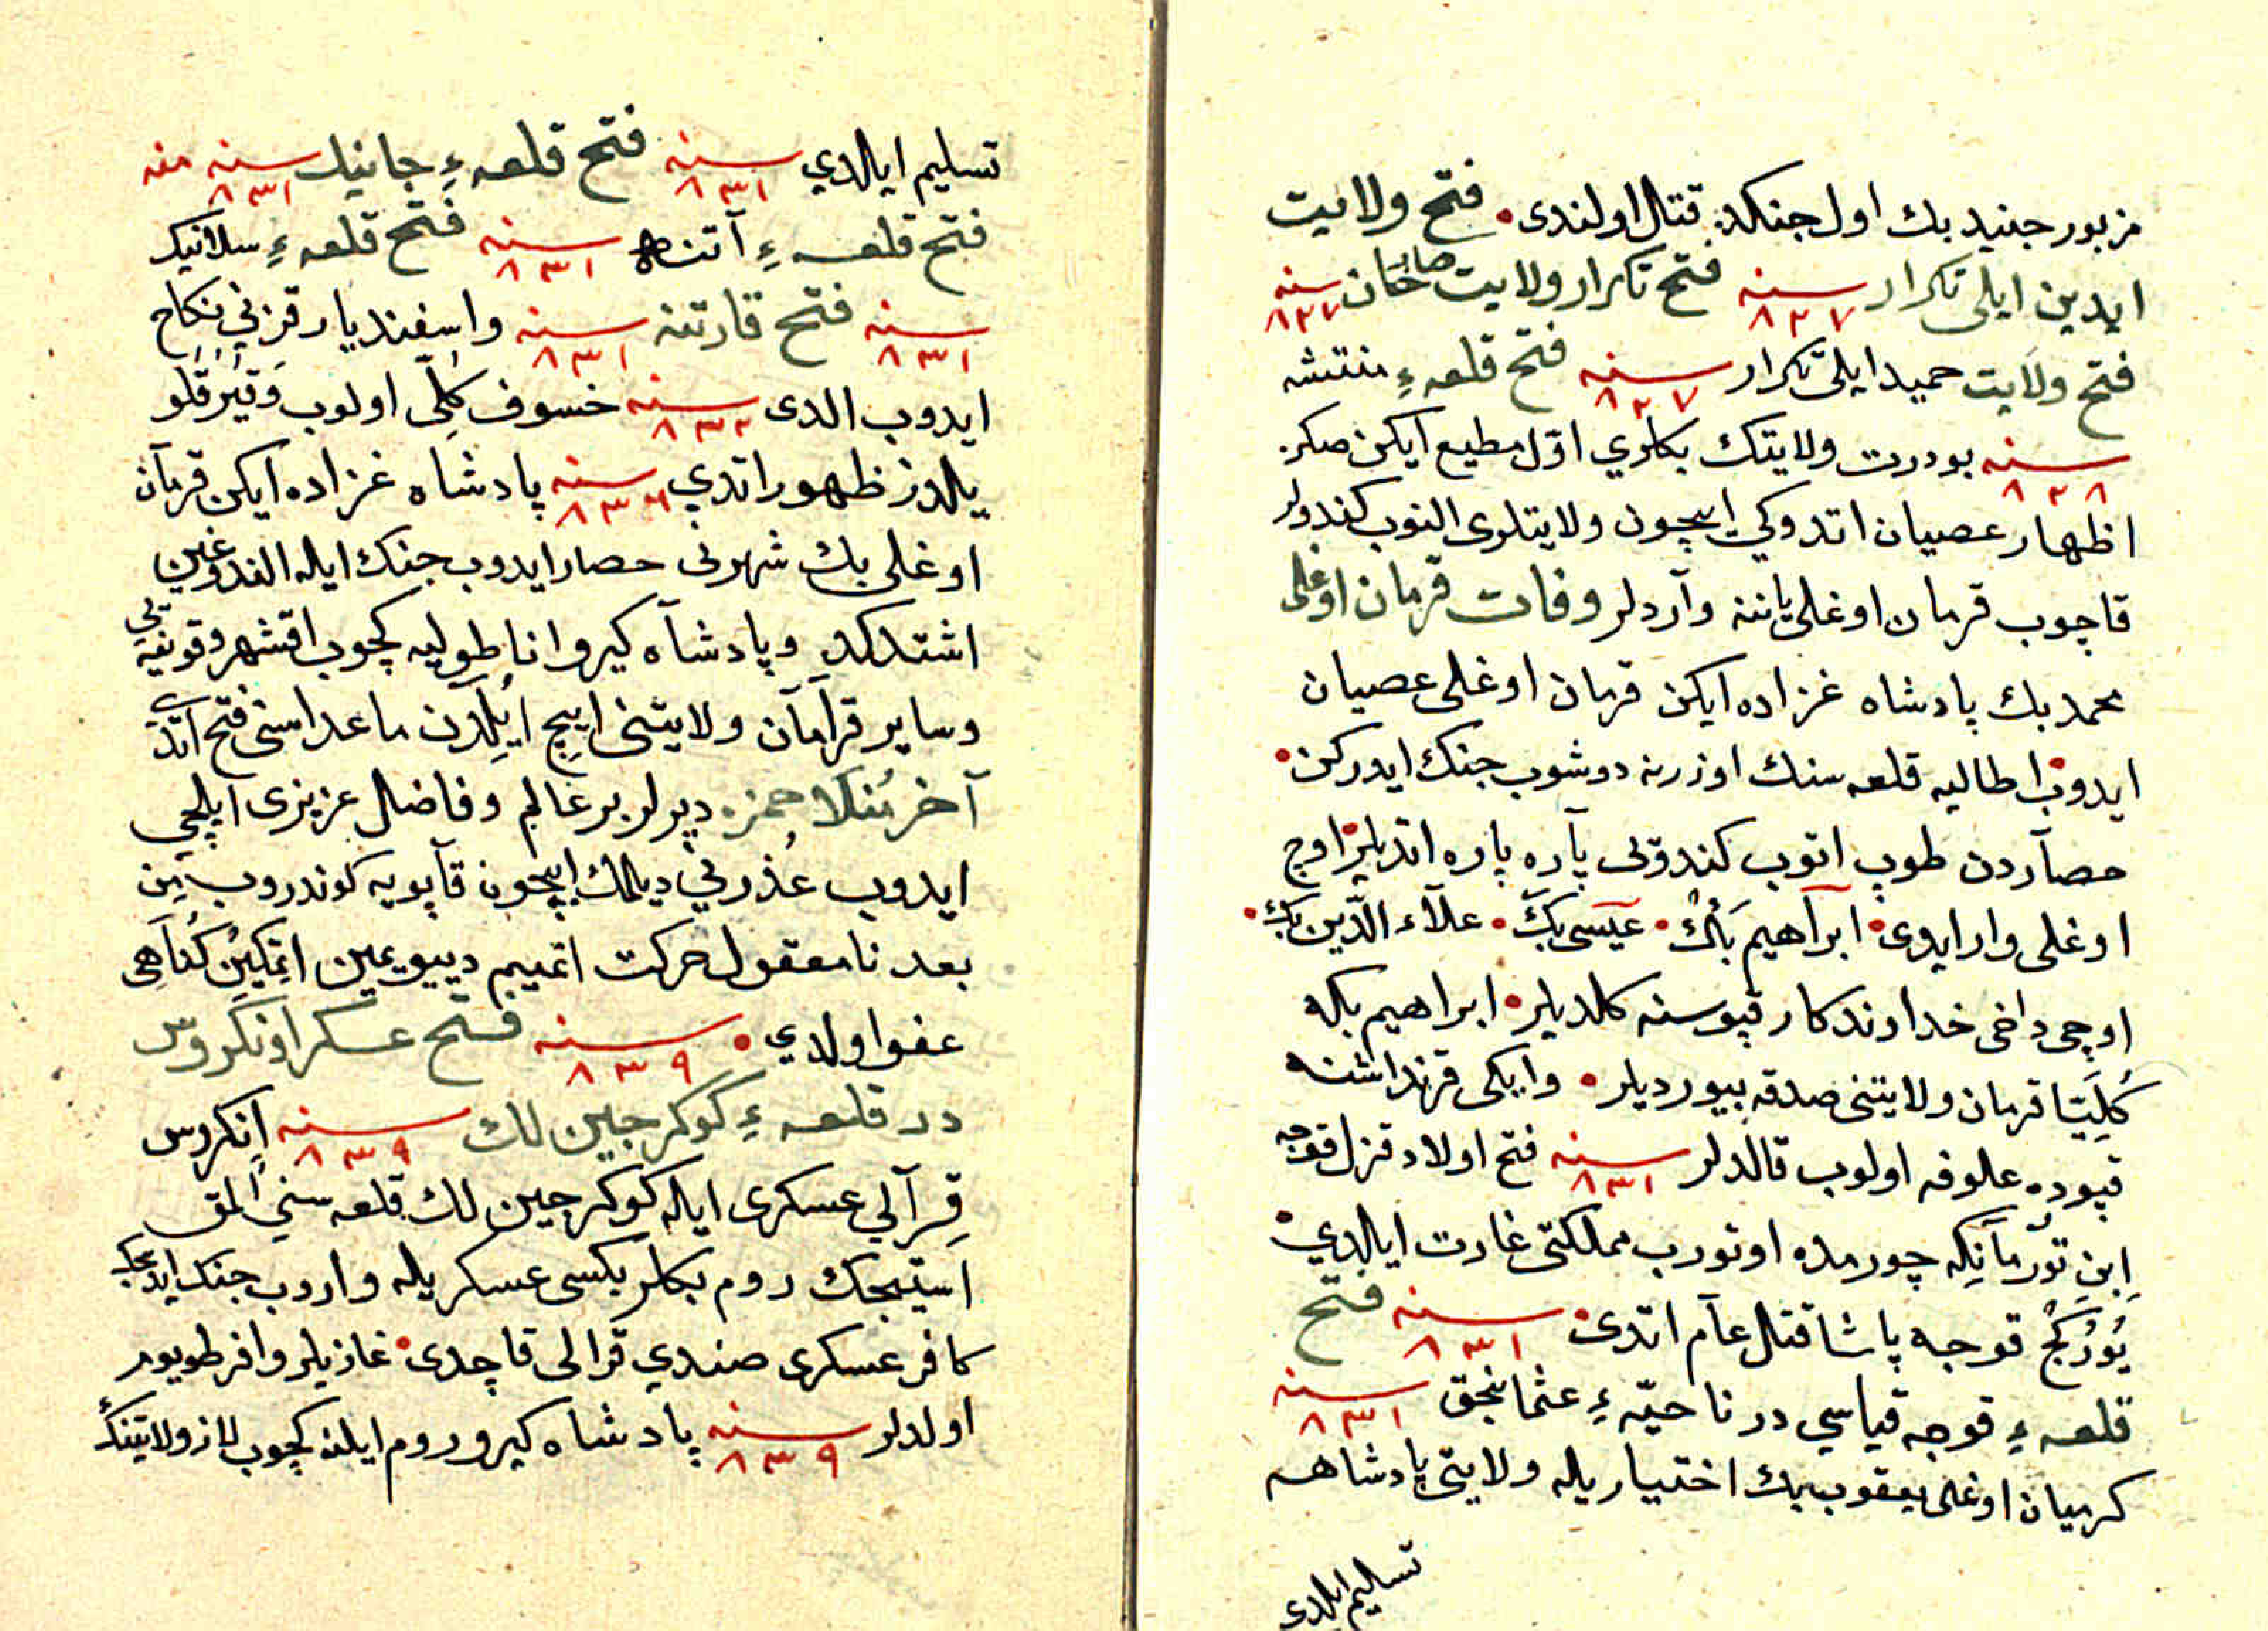 مزبور جنيد بك اول جنكده قتال اولندى • فتح ولايت
ايدين ايلى تكرار سنه ٨٢٧ فتح تكرار ولايت صارخان سنه ٨٢٧
فتح ولايت حميد ايلى تكرار سنه ٨٢٧ فتح قلعهء منتشه
سنه ٨٢٨ بو درت ولايتك بكلري اوّل مطيع ايكن صكره
اظهار عصيان اتدوكي ايچون ولايتلرى النوب كندولر
قاچوب قرمان اوغلى ياننه وآردلر وفات قرمان اوغلى
محمد بك پادشاه غزاده ايكن قرمان اوغلى عصيان
ايدوب اطاليه قلعه سنك اوزرنه دوشوب جنك ايدركن •
حصآردن طوپ اتوب كندوتى پآره پاره اتديلر • اوچ
اوغلى وار ايدى • ابرآهيم بَكْ • عيسى بكّ • علآء الدّين بك •
اوچى داخى خداوندكار قپوسنه كلديلر • ابراهيم بكه
كُلِيّتا قرمان ولايتنى صدقه بيورديلر • وايكى قرنداشنه
قپوده علوفه اولوب قالدلر سنه ٨٣١ فتح اولاد قزل قوجه
اِبنِ تُورمآنِكه چورمده اوتورب مملكتى غارت ايلدي •
يُورْكَجْ قوجه پاشا قتال عآم اتدى • سنه ٨٣١ فتح
قلعهء قوجه قياسي در ناحيّهء عثمانجق سنه ٨٣١
كرميان اوغلى يعقوب بك اختياريله ولايتى پادشاهه
تسليم ايلدى
تسليم ايلدي سنه ٨٣١ فتح قلعهء جانيك سنه ٨٣١ منه
فتح قلعهء آتنه سنه ٨٣١ فتح قلعهء سلانيك
سنه ٨٣١ فتح قارتنه سنه ٨٣١ واسفنديار قزني نكاح
ايدوب الدى سنه ٨٣٢ خسوف كُلّى اولوب وَقُيْرُقْلو
يلدز ظهور اتدي سنه ٨٣٦ پادشاه غزاده ايكن قرمآن
اوغلى بك شهرنى حصار ايدوب جنك ايله الندوغين
اشتدكده وپادشآه كيرو اناطوليه كچوب اقشهر وقونيه يى
وساير قرآمآن ولايتنى ايچ ايلِدن ماعداسنى فتح اتدى
آخر مُنلا حمزه ديرلر بر عالم وفاضل عزيزى ايلچى
ايدوب عُذرني ديلمك ايچون قآپويه كوندروب مِن
بعد نامعقول حركت اتميم ديو يمين اتمكين كُناهى
عفو اولدي • سنه ٨٣٩ فتح عسكر اونكروس
در قلعهء كوكرجين لك سنه ٨٣٩ اُنكروس
قِرآلي عسكرى ايله كوكرجين لك قلعه سني المق
استيجك روم بكلر بكسى عسكريله واروب جنك ايديجك
كافر عسكرى صندي قرالى قاچدى • غازيلر وافر طويوم
اولدلر سنه ٨٣٩ پادشاه كيرو روم ايلنه كچوب لاز ولايتنك